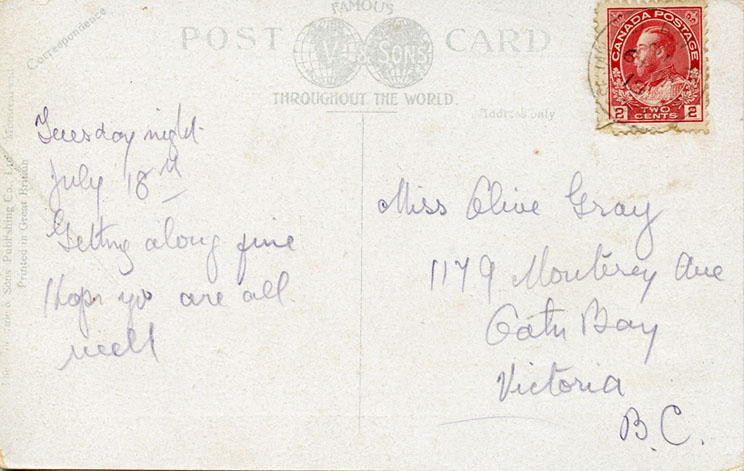 Correspondence
FAMOUS
POST CARD
V. & SONS
THROUGHOUT THE WORLD.
Address only
CANADA POSTAGE
2 TWO CENTS 2
& Sons Publishing Co.,
Printed in Great Britain
Tuesday night
July 18th
Getting along fine
Hope you are all
well
Miss Olive Gray
1179 Monterey Ave
Oak Bay
Victoria
B.C.